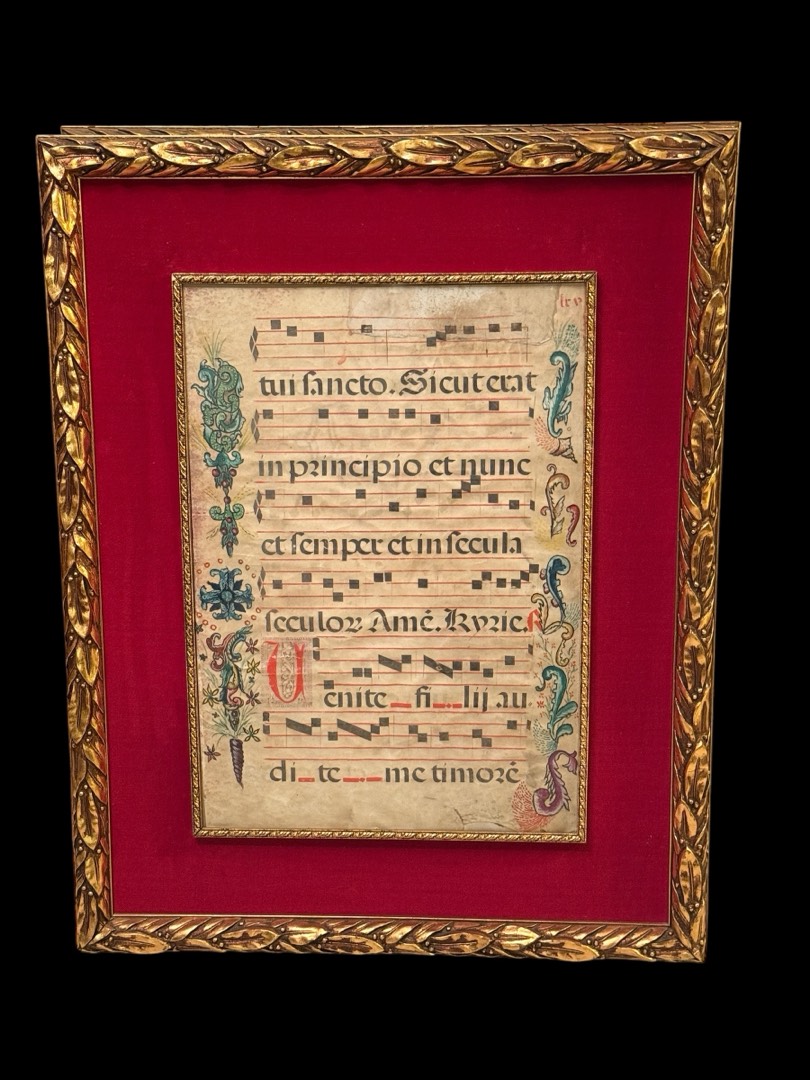 lxv
tui sancto. Sicut erat
in principio et nunc
et semper et in secula
seculoꝝ Amē. Kyrie.
Venite _ fi_._lij au
di_te _._ me timorē